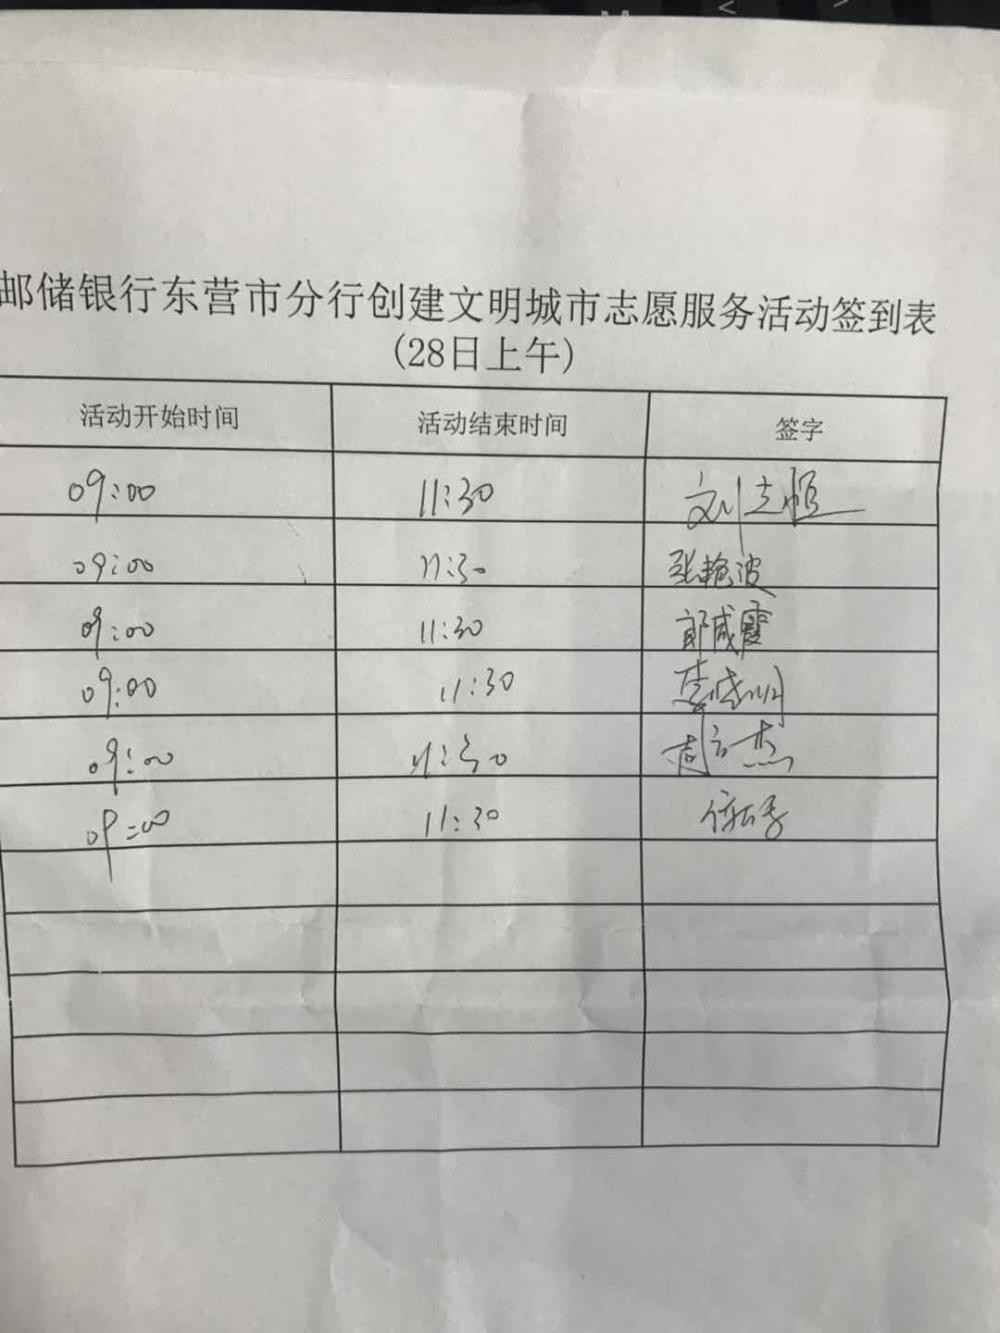 邮储银行东营市分行创建文明城市志愿服务活动签到表
(28日上午)
活动开始时间 活动结束时间 签字
09:00 11:30 刘志恒
09:00 11:30 张艳波
09:00 11:30 郭咸霞
09:00 11:30 李晓明
09:00 11:30 周立杰
09:00 11:30